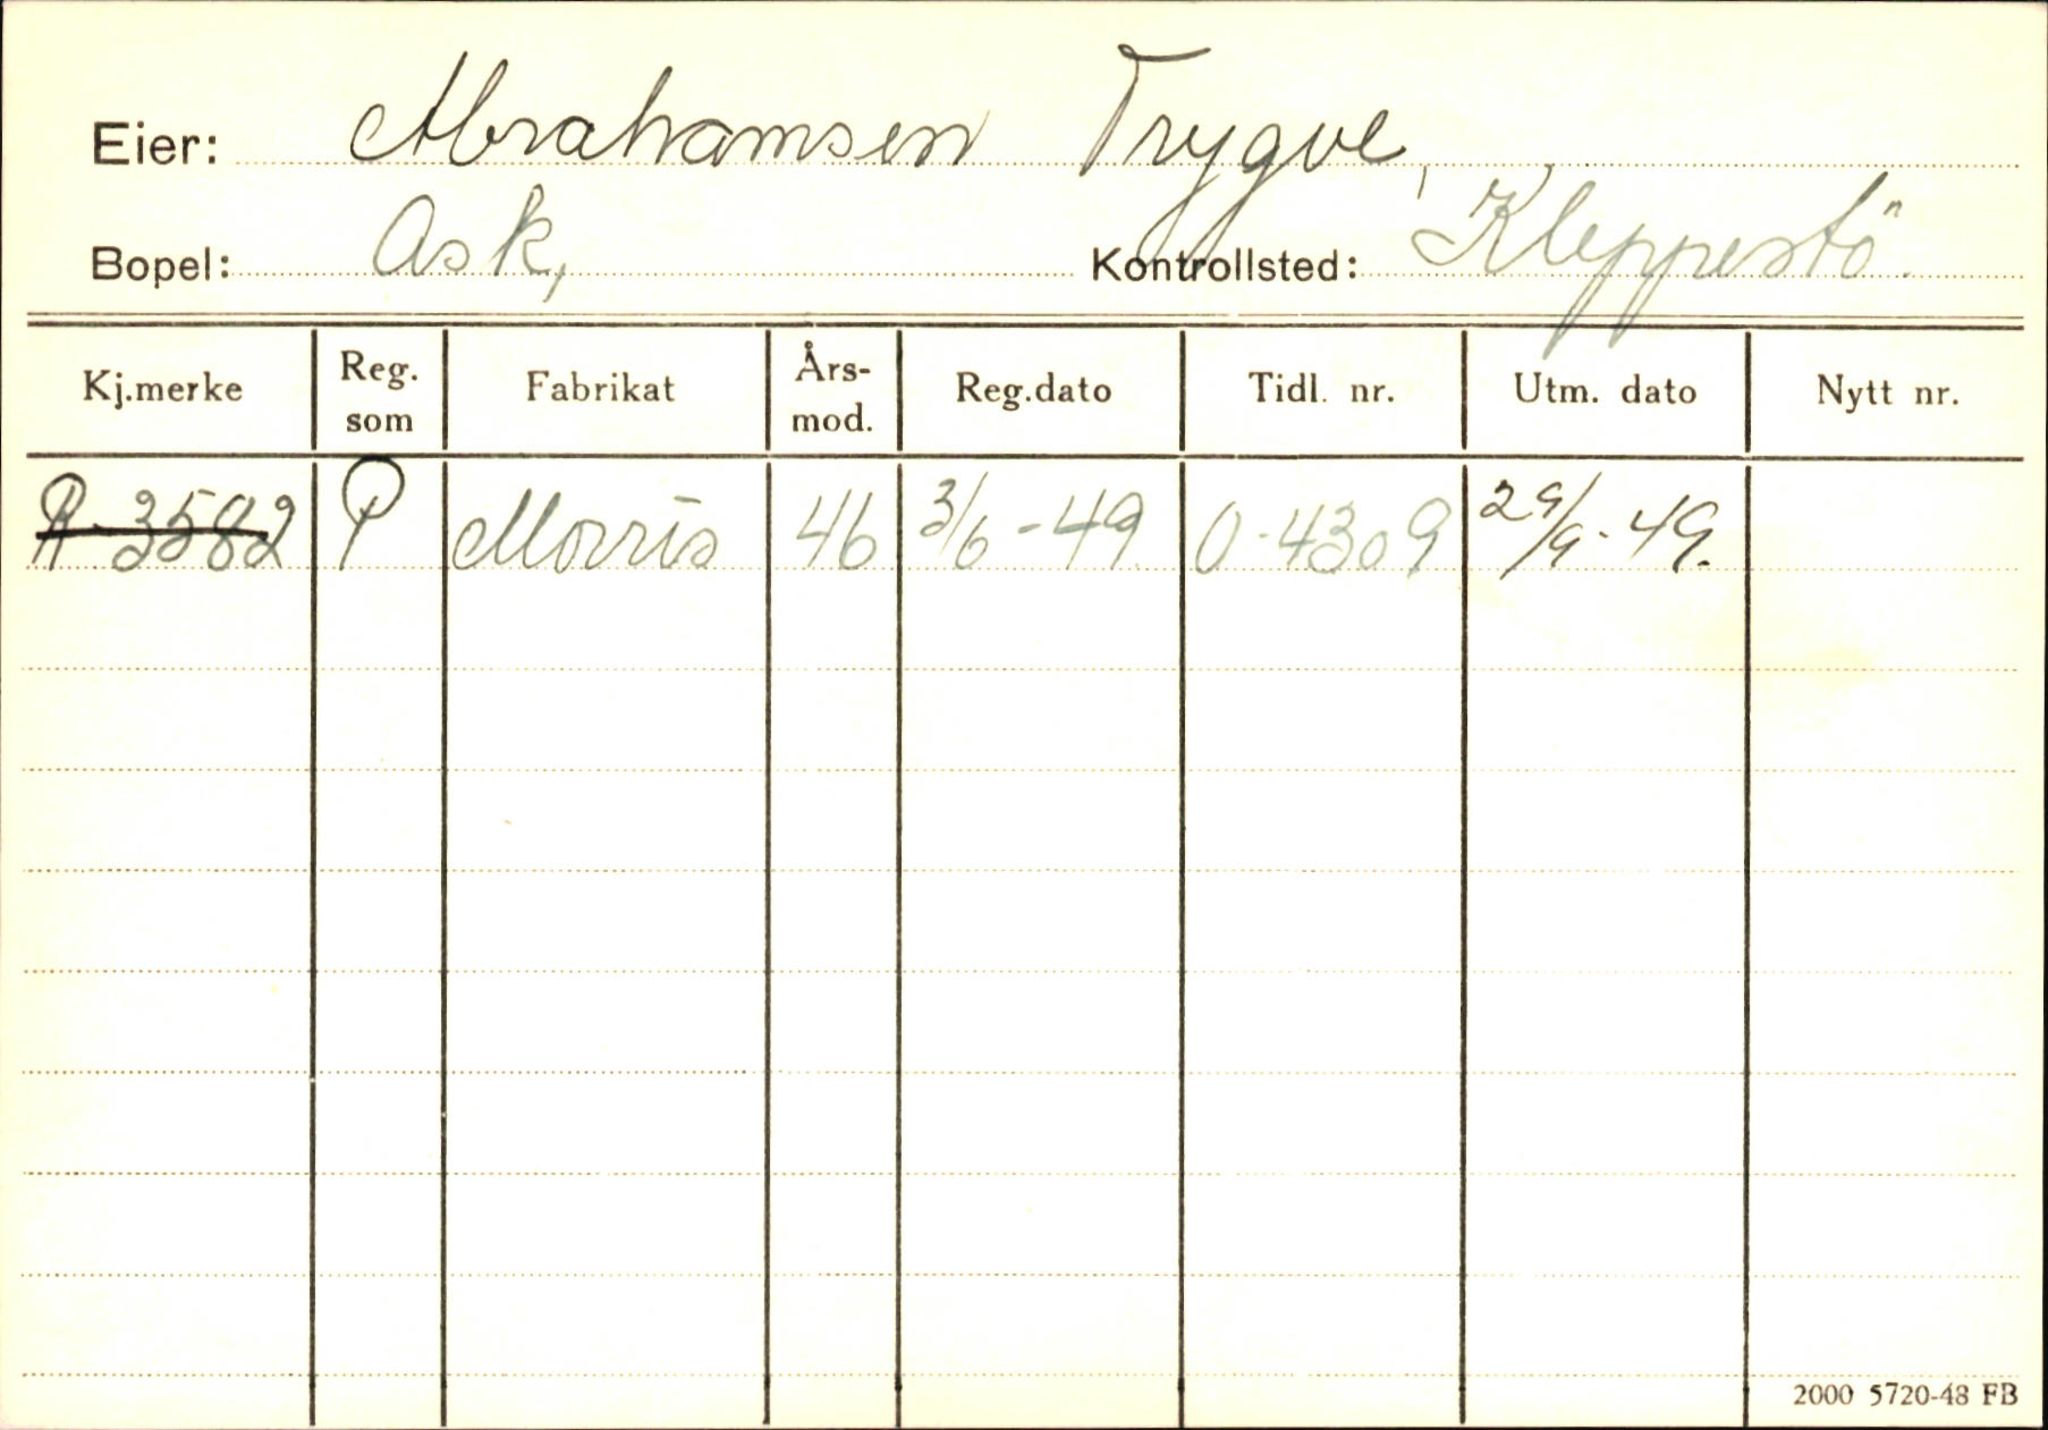 Eier: Abrahamsen Trygve,
Bopel: Ask, Kontrollsted: Kleppestö.
Kj.merke Reg. som Fabrikat Års-mod. Reg.dato Tidl. nr. Utm. dato Nytt nr.
R-3582 P Morris 46 3/6-49 O-4309 29/9-49.
2000 5720-48 FB